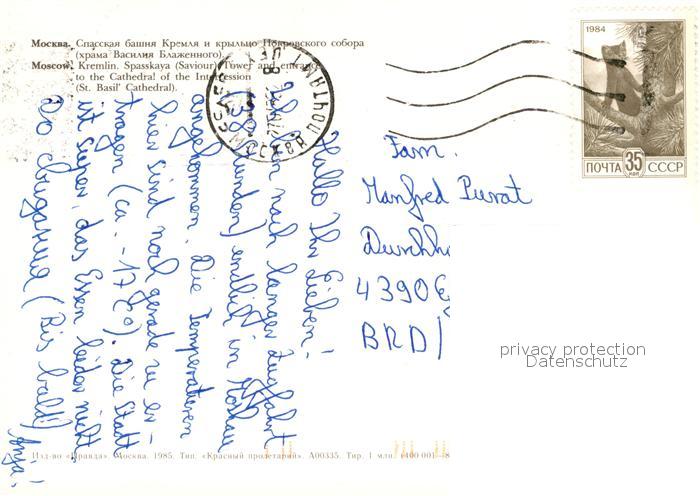 Москва. Спасская башня Кремля и крыльцо Покровского собора
(храма Василия Блаженного).
Moscow. Kremlin. Spasskaya (Saviour) Tower and entrance
to the Cathedral of the Intercession
(St. Basil' Cathedral).
1984
ПОЧТА 35 коп СССР
МОСКВА
Hallo Ihr Lieben!
Ich bin nach langer Zugfahrt
(38 Stunden) endlich in Moskau
angekommen. Die Temperaturen
hier sind noch gerade zu er-
tragen (ca. -17 C°). Die Stadt
ist super, das Essen leider nicht
До свидания (Bis bald!)
Anja!
Fam.
Manfred
Durchh
4390 G
BRD
privacy protection
Datenschutz
Изд-во «Правда». Москва. 1985. Тип. «Красный пролетарий». А00335. Тир. 1 млн. (400 001—8